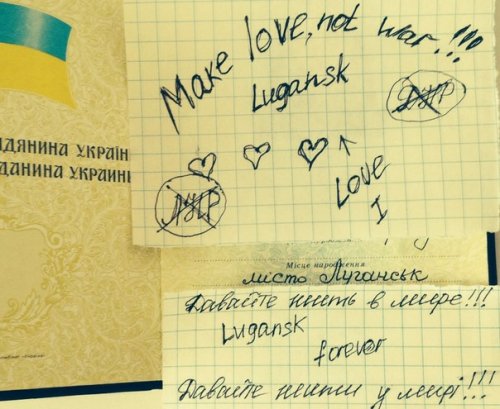 Make love, not war.!!!
Lugansk
ДНР
ДЯНИНА УКРАЇН
ДАНИНА УКРАИН
ЛНР
Love
I
Місце народження
місто Луганськ
Давайте жить в мире!!!
Lugansk
forever
Давайте жити у мирі!!!